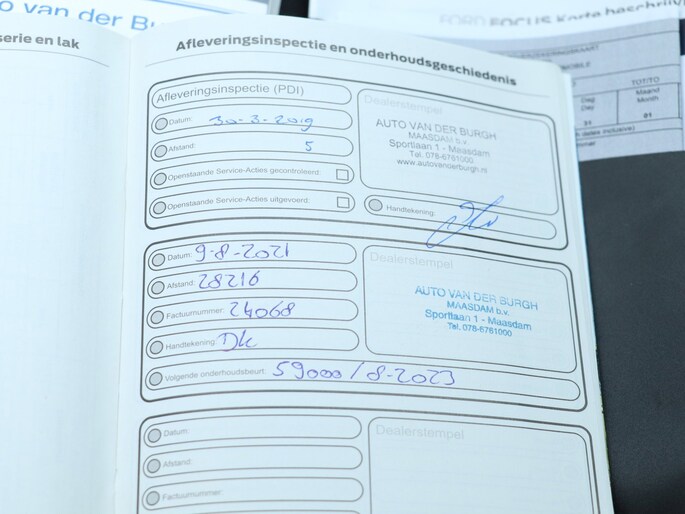 o van der Bu
FORD FOCUS Korte beschrijvi
serie en lak
Afleveringsinspectie en onderhoudsgeschiedenis
Afleveringsinspectie (PDI)
Datum: 30-3-2019
Afstand: 5
Openstaande Service-Acties gecontroleerd:
Openstaande Service-Acties uitgevoerd:
Dealerstempel
AUTO VAN DER BURGH
MAASDAM b.v.
Sportlaan 1 - Maasdam
Tel. 078-6761000
www.autovanderburgh.nl
Handtekening:
Datum: 9-8-2021
Afstand: 28216
Factuurnummer: 24068
Handtekening: Dk
Volgende onderhoudsbeurt: 59000/8-2023
Dealerstempel
AUTO VAN DER BURGH
MAASDAM b.v.
Sportlaan 1 - Maasdam
Tel. 078-6761000
Datum:
Afstand:
Factuurnummer:
Dealerstempel
TOT/TO
Dag
Day
Maand
Month
31
01
dates inclusive)